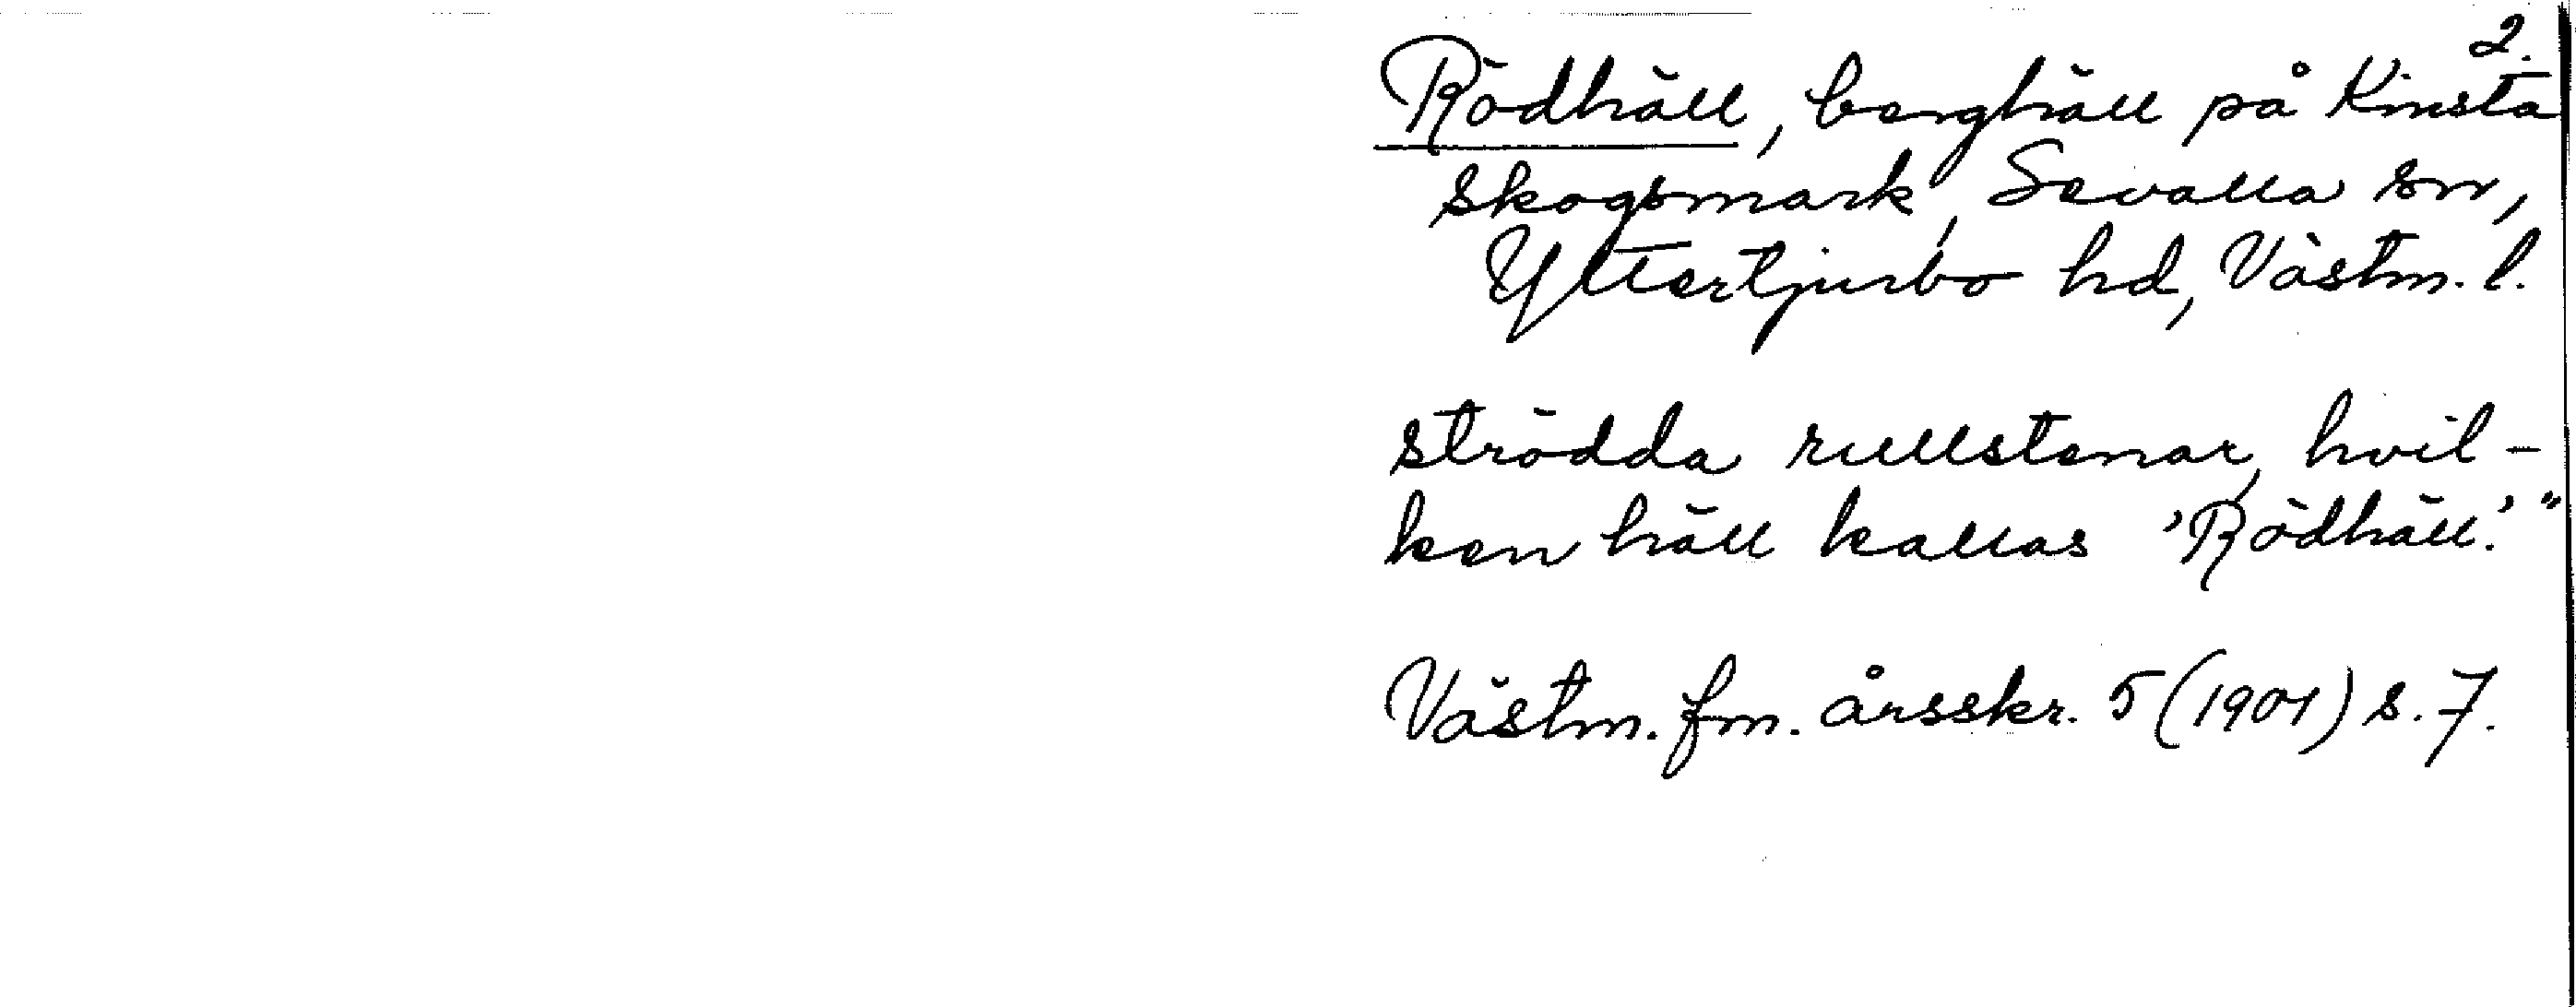 2.
Rödhäll, berghäll på Kinsta
skogsmark, Sevalla sn,
Yttertjurbo hd, Västm. l.
strödda rullstenar, hvil-
ken häll kallas 'Rödhäll'."
Västm. fm. årsskr. 5 (1901) s. 7.